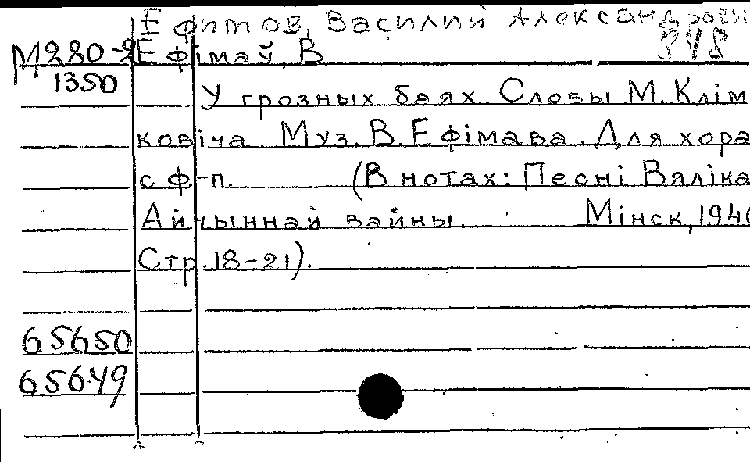 Ефимов, Василий Александрови
М280-2 Ефімаў, В. 348
1350 У грозных баях. Словы М. Клім
ковіча. Муз. В. Ефімава. Для хора
с ф-п. (В нотах: Песні Вяліка
Айчыннай вайны. Мінск, 194
Стр. 18-21).
65650
65649